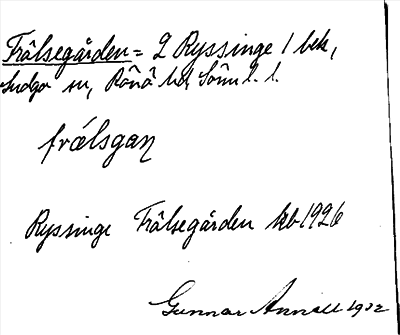 Frälsegården = 2 Ryssinge 1 bek,
sn, Rönö hd, Söml. l.
frälsgaŋ
Ryssinge Frälsegården kb 1926
Gunnar 1932